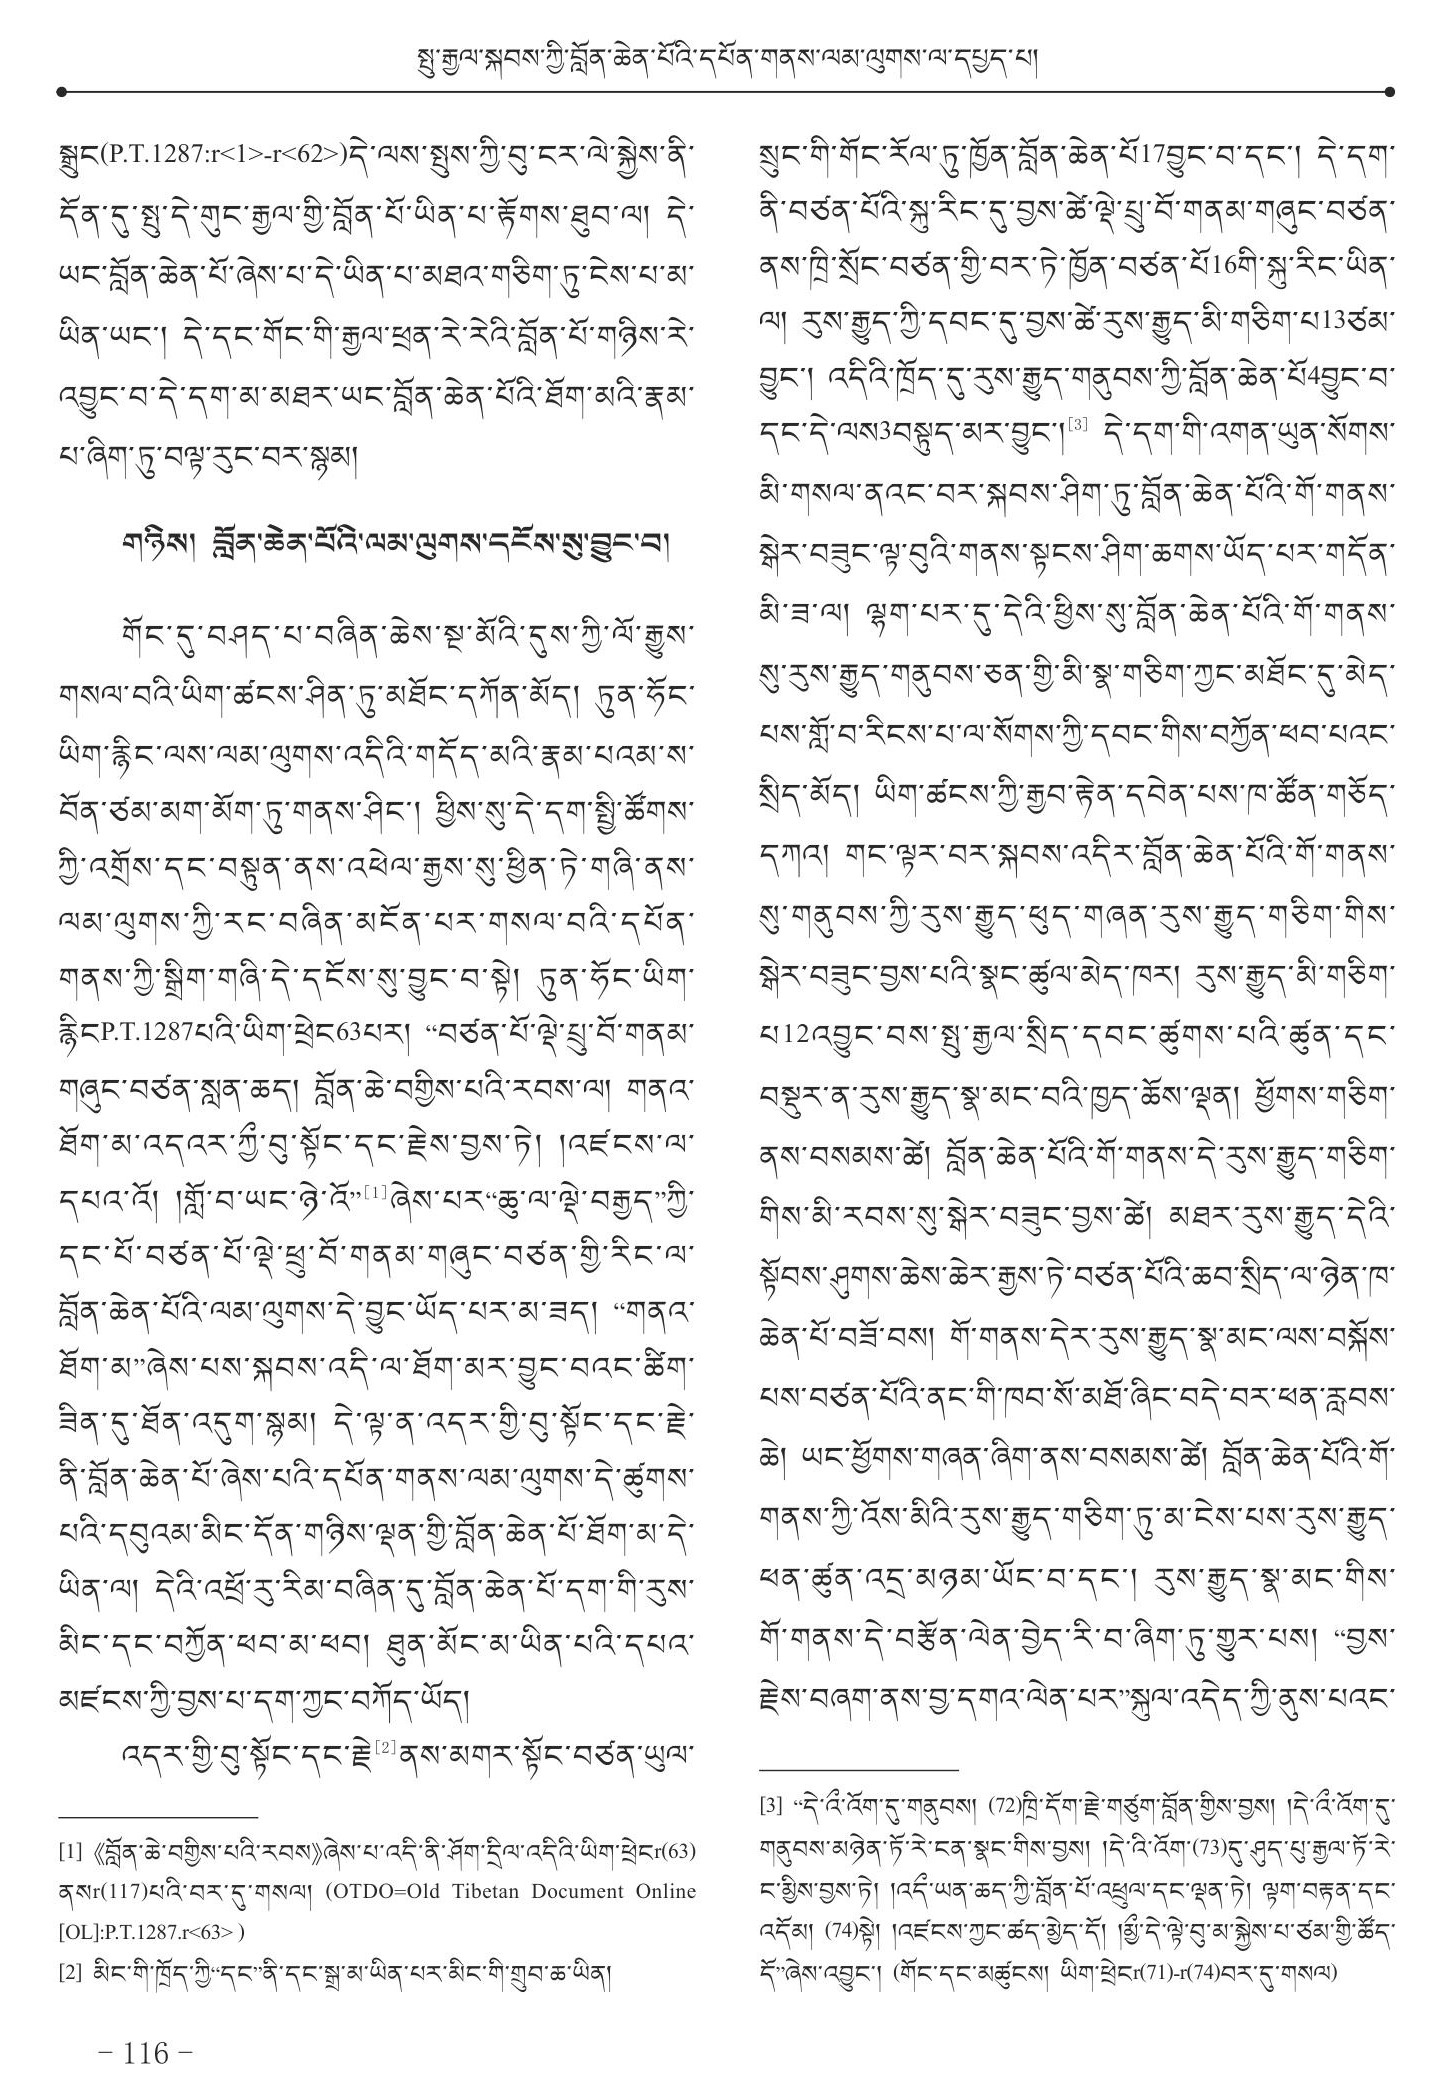 སྤུ་རྒྱལ་སྐབས་ཀྱི་བློན་ཆེན་པོའི་དཔོན་གནས་ལམ་ལུགས་ལ་དཔྱད་པ།
སྒྲུང(P.T.1287:r<1>-r<62>)དེ་ལས་སྤུས་ཀྱི་བུ་ངར་ལེ་སྐྱེས་ནི་
དོན་དུ་སྤུ་དེ་གུང་རྒྱལ་གྱི་བློན་པོ་ཡིན་པ་རྟོགས་ཐུབ་ལ། དེ་
ཡང་བློན་ཆེན་པོ་ཞེས་པ་དེ་ཡིན་པ་མཐའ་གཅིག་ཏུ་ངེས་པ་མ་
ཡིན་ཡང་། དེ་དང་གོང་གི་རྒྱལ་ཕྲན་རེ་རེའི་བློན་པོ་གཉིས་རེ་
འབྱུང་བ་དེ་དག་མ་མཐར་ཡང་བློན་ཆེན་པོའི་ཐོག་མའི་རྣམ་
པ་ཞིག་ཏུ་བལྟ་རུང་བར་སྙམ།
གཉིས། བློན་ཆེན་པོའི་ལམ་ལུགས་དངོས་སུ་བྱུང་བ།
གོང་དུ་བཤད་པ་བཞིན་ཆེས་སྔ་མོའི་དུས་ཀྱི་ལོ་རྒྱུས་
གསལ་བའི་ཡིག་ཚངས་ཤིན་ཏུ་མཐོང་དཀོན་མོད། ཏུན་ཧོང་
ཡིག་རྙིང་ལས་ལམ་ལུགས་འདིའི་གདོད་མའི་རྣམ་པའམ་ས་
བོན་ཙམ་མག་མོག་ཏུ་གནས་ཤིང་། ཕྱིས་སུ་དེ་དག་སྤྱི་ཚོགས་
ཀྱི་འགྲོས་དང་བསྟུན་ནས་འཕེལ་རྒྱས་སུ་ཕྱིན་ཏེ་གཞི་ནས་
ལམ་ལུགས་ཀྱི་རང་བཞིན་མངོན་པར་གསལ་བའི་དཔོན་
གནས་ཀྱི་སྒྲིག་གཞི་དེ་དངོས་སུ་བྱུང་བ་སྟེ། ཏུན་ཧོང་ཡིག་
རྙིངP.T.1287པའི་ཡིག་ཕྲེང63པར། “བཙན་པོ་ལྡེ་པྲུ་བོ་གནམ་
གཞུང་བཙན་སླན་ཆད། བློན་ཆེ་བགྱིས་པའི་རབས་ལ། གནའ་
ཐོག་མ་འདའར་ཀྱྀ་བུ་སྟོང་དང་རྗེས་བྱས་ཏེ། །འཛངས་ལ་
དཔའ་འོ། །གློ་བ་ཡང་ཉེ་འོ”[1]ཞེས་པར“ཆུ་ལ་ལྡེ་བརྒྱད”ཀྱི་
དང་པོ་བཙན་པོ་ལྡེ་ཕྲུ་བོ་གནམ་གཞུང་བཙན་གྱི་རིང་ལ་
བློན་ཆེན་པོའི་ལམ་ལུགས་དེ་བྱུང་ཡོད་པར་མ་ཟད། “གནའ་
ཐོག་མ”ཞེས་པས་སྐབས་འདི་ལ་ཐོག་མར་བྱུང་བའང་ཚིག་
ཟིན་དུ་ཐོན་འདུག་སྙམ། དེ་ལྟ་ན་འདར་གྱི་བུ་སྟོང་དང་རྗེ་
ནི་བློན་ཆེན་པོ་ཞེས་པའི་དཔོན་གནས་ལམ་ལུགས་དེ་ཚུགས་
པའི་དབུའམ་མིང་དོན་གཉིས་ལྡན་གྱི་བློན་ཆེན་པོ་ཐོག་མ་དེ་
ཡིན་ལ། དེའི་འཕྲོ་རུ་རིམ་བཞིན་དུ་བློན་ཆེན་པོ་དག་གི་རུས་
མིང་དང་བཀྱོན་ཕབ་མ་ཕབ། ཐུན་མོང་མ་ཡིན་པའི་དཔའ་
མཛངས་ཀྱི་བྱས་པ་དག་ཀྱང་བཀོད་ཡོད།
འདར་གྱི་བུ་སྟོང་དང་རྗེ[2]ནས་མགར་སྟོང་བཙན་ཡུལ་
[1] 《བློན་ཆེ་བགྱིས་པའི་རབས》ཞེས་པ་འདི་ནི་ཤོག་དྲིལ་འདིའི་ཡིག་ཕྲེངr(63)
ནསr(117)པའི་བར་དུ་གསལ། (OTDO=Old Tibetan Document Online
[OL]:P.T.1287.r<63> )
[2] མིང་གི་ཁྲོད་ཀྱི“དང”ནི་དང་སྒྲ་མ་ཡིན་པར་མིང་གི་གྲུབ་ཆ་ཡིན།
སྲུང་གི་གོང་རོལ་ཏུ་ཁྱོན་བློན་ཆེན་པོ17བྱུང་བ་དང་། དེ་དག་
ནི་བཙན་པོའི་སྐུ་རིང་དུ་བྱས་ཚེ་ལྡེ་པྲུ་བོ་གནམ་གཞུང་བཙན་
ནས་ཁྲི་སྲོང་བཙན་གྱི་བར་ཏེ་ཁྱོན་བཙན་པོ16གི་སྐུ་རིང་ཡིན་
ལ། རུས་རྒྱུད་ཀྱི་དབང་དུ་བྱས་ཚེ་རུས་རྒྱུད་མི་གཅིག་པ13ཙམ་
བྱུང་། འདིའི་ཁྲོད་དུ་རུས་རྒྱུད་གནུབས་ཀྱི་བློན་ཆེན་པོ4བྱུང་བ་
དང་དེ་ལས3བསྟུད་མར་བྱུང་།[3] དེ་དག་གི་འགན་ཡུན་སོགས་
མི་གསལ་ནའང་བར་སྐབས་ཤིག་ཏུ་བློན་ཆེན་པོའི་གོ་གནས་
སྒེར་བཟུང་ལྟ་བུའི་གནས་སྟངས་ཤིག་ཆགས་ཡོད་པར་གདོན་
མི་ཟ་ལ། ལྷག་པར་དུ་དེའི་ཕྱིས་སུ་བློན་ཆེན་པོའི་གོ་གནས་
སུ་རུས་རྒྱུད་གནུབས་ཅན་གྱི་མི་སྣ་གཅིག་ཀྱང་མཐོང་དུ་མེད་
པས་གློ་བ་རིངས་པ་ལ་སོགས་ཀྱི་དབང་གིས་བཀྱོན་ཕབ་པའང་
སྲིད་མོད། ཡིག་ཚངས་ཀྱི་རྒྱབ་རྟེན་དབེན་པས་ཁ་ཚོན་གཅོད་
དཀའ། གང་ལྟར་བར་སྐབས་འདིར་བློན་ཆེན་པོའི་གོ་གནས་
སུ་གནུབས་ཀྱི་རུས་རྒྱུད་ཕུད་གཞན་རུས་རྒྱུད་གཅིག་གིས་
སྒེར་བཟུང་བྱས་པའི་སྣང་ཚུལ་མེད་ཁར། རུས་རྒྱུད་མི་གཅིག་
པ12འབྱུང་བས་སྤུ་རྒྱལ་སྲིད་དབང་ཚུགས་པའི་ཚུན་དང་
བསྡུར་ན་རུས་རྒྱུད་སྣ་མང་བའི་ཁྱད་ཆོས་ལྡན། ཕྱོགས་གཅིག་
ནས་བསམས་ཚེ། བློན་ཆེན་པོའི་གོ་གནས་དེ་རུས་རྒྱུད་གཅིག་
གིས་མི་རབས་སུ་སྒེར་བཟུང་བྱས་ཚེ། མཐར་རུས་རྒྱུད་དེའི་
སྟོབས་ཤུགས་ཆེས་ཆེར་རྒྱས་ཏེ་བཙན་པོའི་ཆབ་སྲིད་ལ་ཉེན་ཁ་
ཆེན་པོ་བཟོ་བས། གོ་གནས་དེར་རུས་རྒྱུད་སྣ་མང་ལས་བསྐོས་
པས་བཙན་པོའི་ནང་གི་ཁབ་སོ་མཐོ་ཞིང་བདེ་བར་ཕན་རླབས་
ཆེ། ཡང་ཕྱོགས་གཞན་ཞིག་ནས་བསམས་ཚེ། བློན་ཆེན་པོའི་གོ་
གནས་ཀྱི་འོས་མིའི་རུས་རྒྱུད་གཅིག་ཏུ་མ་ངེས་པས་རུས་རྒྱུད་
ཕན་ཚུན་འདྲ་མཉམ་ཡོང་བ་དང་། རུས་རྒྱུད་སྣ་མང་གིས་
གོ་གནས་དེ་བརྩོན་ལེན་བྱེད་རི་བ་ཞིག་ཏུ་གྱུར་པས། “བྱས་
རྗེས་བཞག་ནས་བྱ་དགའ་ལེན་པར”སྐུལ་འདེད་ཀྱི་ནུས་པའང་
[3] “དེ་འྀ་འོག་དུ་གནུབས། (72)ཁྲི་དོག་རྗེ་གཙུག་བློན་གྱིས་བྱས། །དེ་འྀ་འོག་དུ་
གནུབས་མཉེན་ཏོ་རེ་ངན་སྣང་གིས་བྱས། །དེ་འི་འོག་(73)དུ་ཤུད་པུ་རྒྱལ་ཏོ་རེ་
ང་མྱིས་བྱས་ཏེ། །འདྀ་ཡན་ཆད་ཀྱི་བློན་པོ་འཕྲུལ་དང་ལྡན་ཏེ། ལྟག་བརྟན་དང་
འདོམ། (74)སྟེ། །འཛངས་ཀྱང་ཚད་མྱེད་དོ། །མྱྀ་དེ་ལྟེ་བུ་མ་སྐྱེས་པ་ཙམ་གྱི་ཚོད་
དོ”ཞེས་འབྱུང་། (གོང་དང་མཚུངས། ཡིག་ཕྲེངr(71)-r(74)བར་དུ་གསལ)
– 116 –